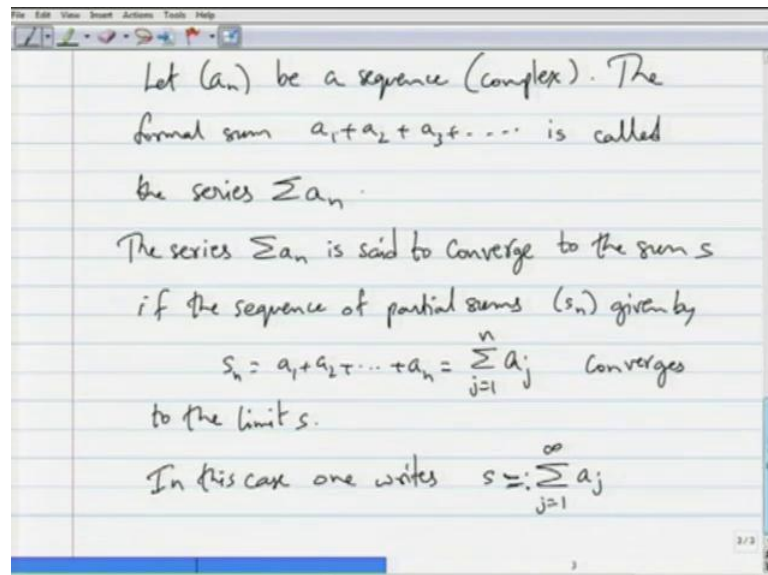 File Edit View Insert Actions Tools Help
Let (aₙ) be a sequence (complex). The
formal sum a₁+a₂+a₃+..... is called
the series Σaₙ.
The series Σaₙ is said to converge to the sum s
if the sequence of partial sums (sₙ) given by
sₙ = a₁+a₂+...+aₙ = Σ_{j=1}^{n} a_j converges
to the limit s.
In this case one writes s =: Σ_{j=1}^{∞} a_j
3/3
3